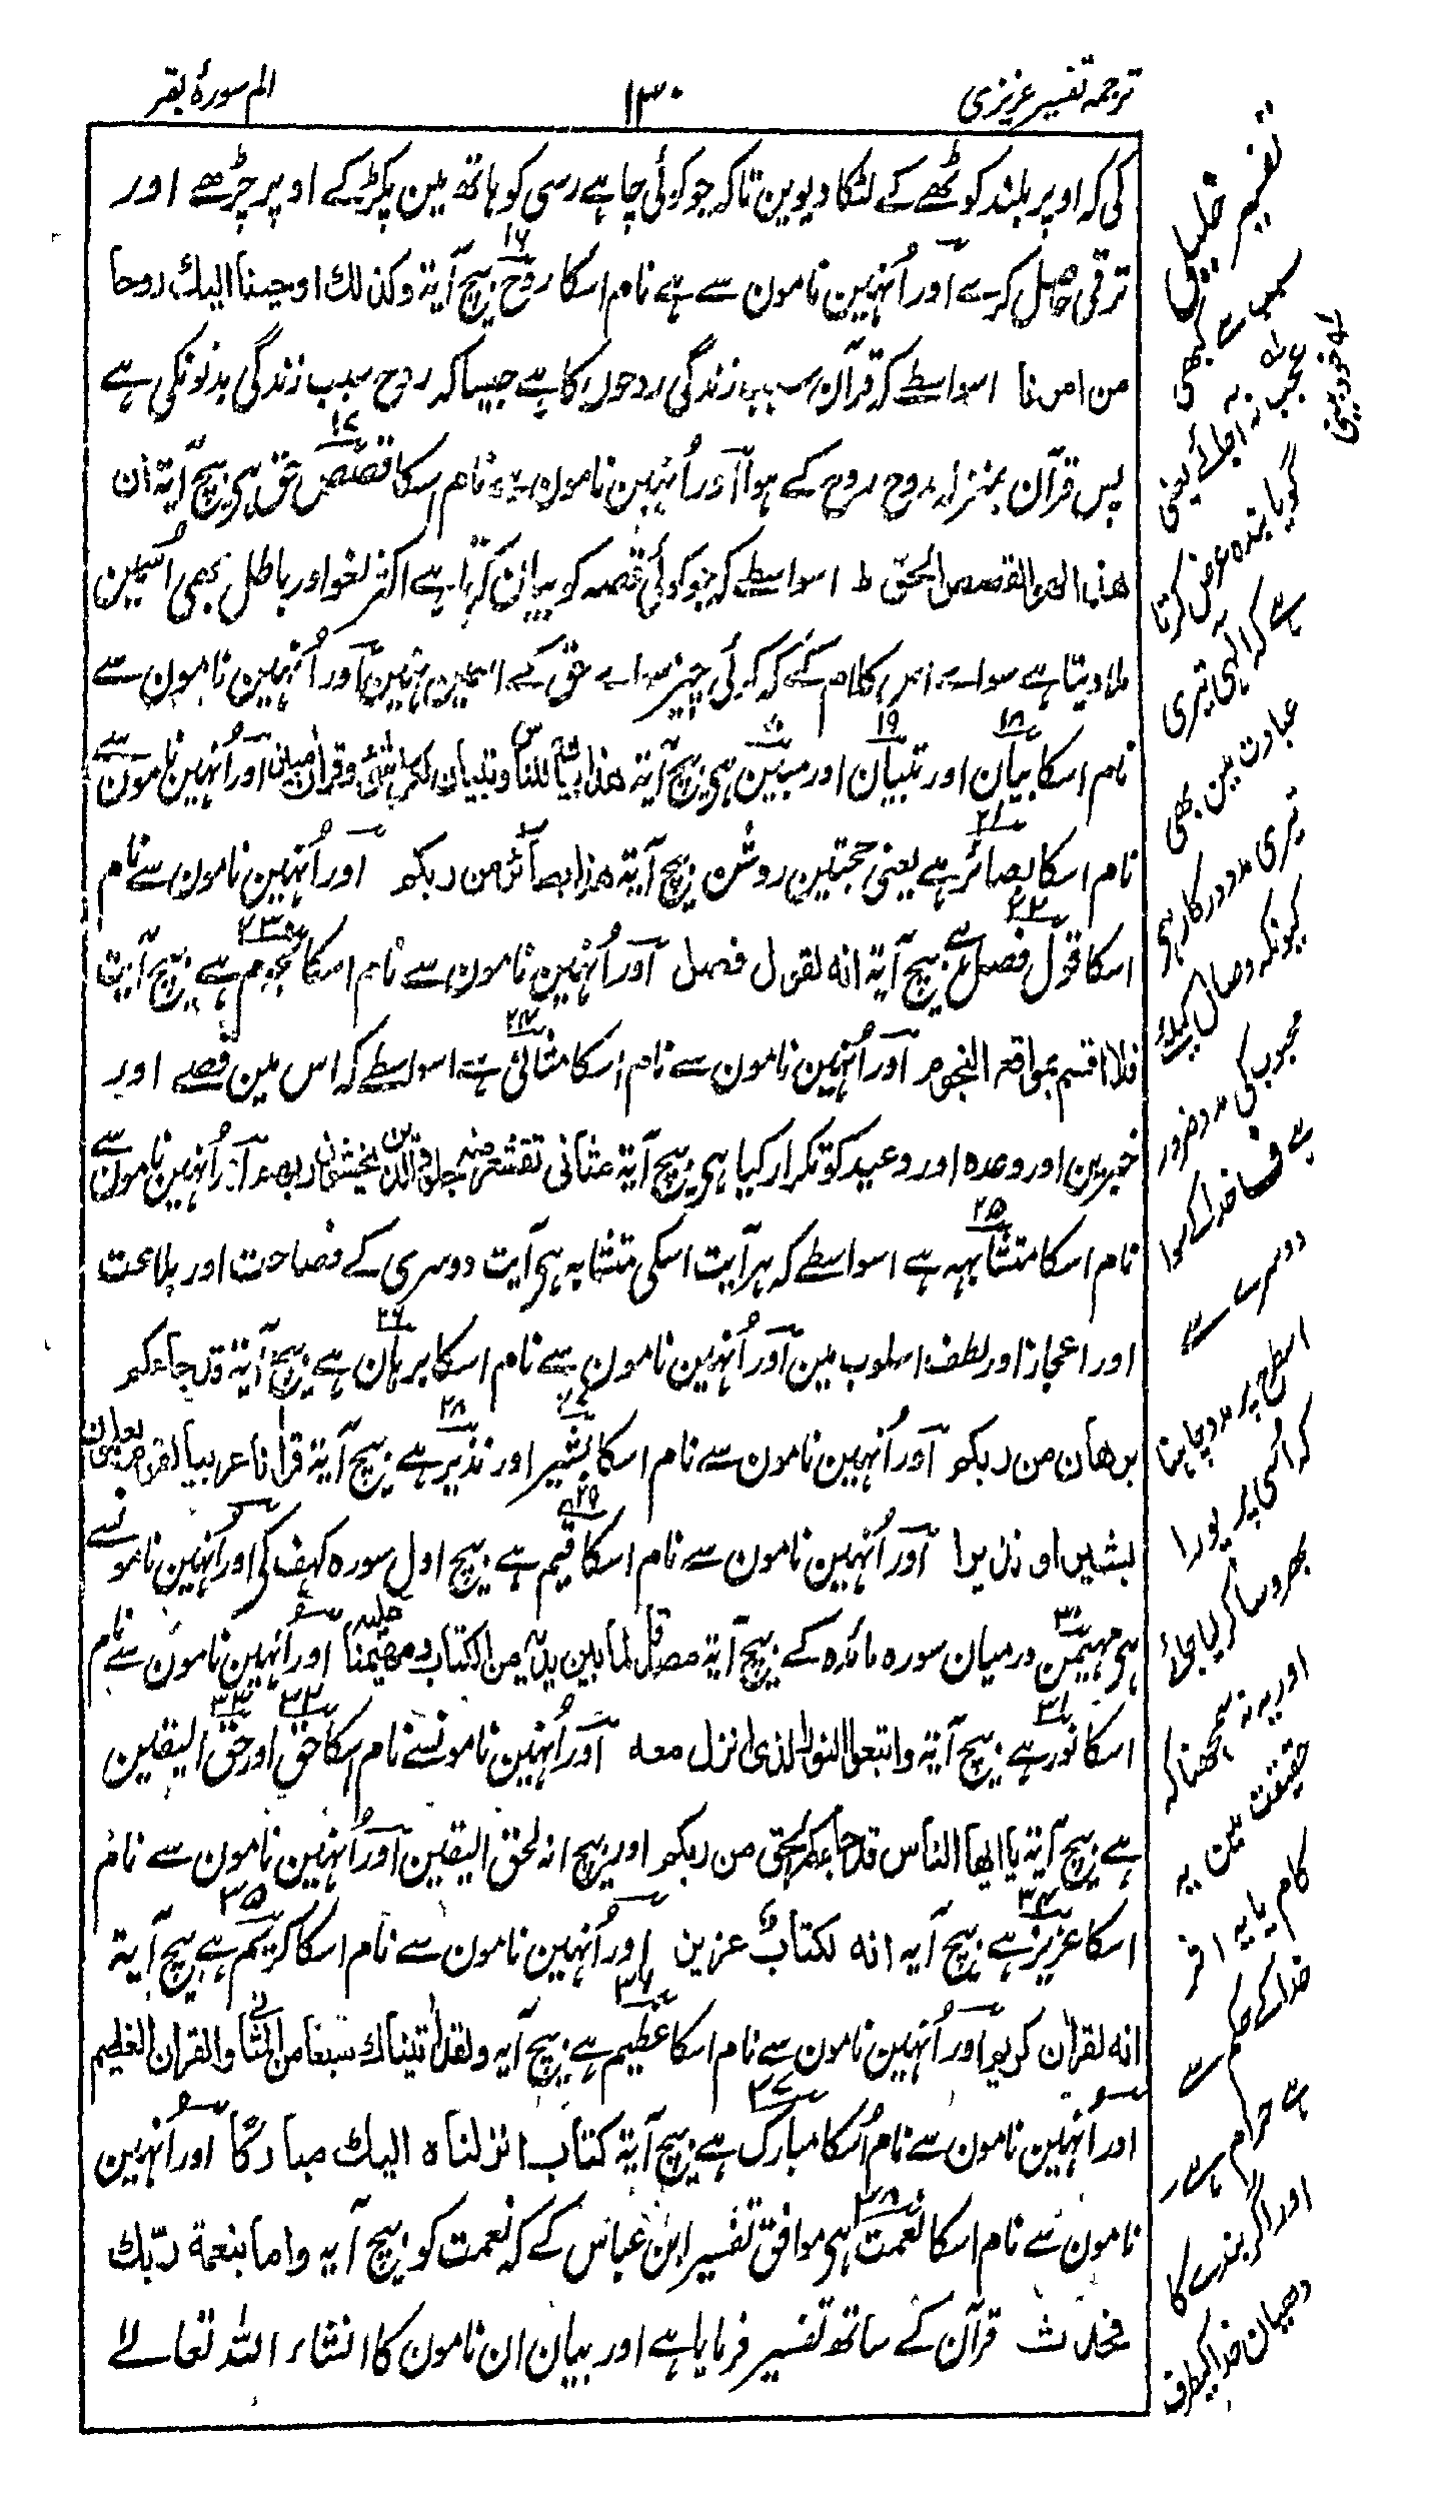 ترجمہ تفسیر عزیزی
۱۳۰
الم سورۂ بقر
کی کہ اوپر بلند کوٹھے کے لٹکا دیوین تاکہ جو کوئی چاہے رسی کو ہاتھ مین پکڑ کے اوپر چڑھے اور
ترقی حاصل کرے اور اُنہین نامون سے ہے نام اسکا روح ۱۶ بیچ آیۃ وکذلك اوحینا الیك روحا
من امرنا اسواسطے کہ قرآن سبب زندگی روحون کا ہے جیسا کہ روح سبب زندگی بدنونکی ہے
پس قرآن بمنزلہ روح روح کے ہوا اور اُنہین نامون سے نام اسکا قصص حق ۱۷ ہی بیچ آیۃ ان
هذا لهو القصص الحق ط اسواسطے کہ جو کوئی قصہ کو بیان کرتا ہے اکثر لغو اور باطل بھی اُسمین
ملا دیتا ہے سواے اس کلام کے کہ کوئی چیز سواے حق کے اسمین نہین اور اُنہین نامون سے
نام اسکا بیان ۱۸ اور تبیان ۱۹ اور مبین ۲۰ ہی بیچ آیۃ هذا بیان للناس وتبیان لکل شئ وقران مبین اور اُنہین نامون سے
نام اسکا بصائر ۲۱ ہے یعنی حجتین روشن بیچ آیۃ هذا بصائر من ربکم اور اُنہین نامون سے نام
اسکا قول فصل ۲۲ ہے بیچ آیۃ انه لقول فصل اور اُنہین نامون سے نام اسکا نجوم ۲۳ ہے بیچ آیت
فلا اقسم بمواقع النجوم اور اُنہین نامون سے نام اسکا مثانی ۲۴ ہے اسواسطے کہ اس مین قصے اور
خبرین اور وعدہ اور وعید کو تکرار کیا ہی بیچ آیۃ مثانی تقشعر منه جلود الذین یخشون ربهم اور اُنہین نامون سے
نام اسکا متشابہہ ۲۵ ہے اسواسطے کہ ہر آیت اسکی متشابہ ہی آیت دوسری کے فصاحت اور بلاغت
اور اعجاز اور لطف اسلوب مین اور اُنہین نامون سے نام اسکا برہان ۲۶ ہے بیچ آیۃ قد جاءکم
برهان من ربکم اور اُنہین نامون سے نام اسکا بشیر ۲۷ اور نذیر ۲۸ ہے بیچ آیۃ قرانا عربیا لقوم یعلمون
بشیرا و نذیرا اور اُنہین نامون سے نام اسکا قیم ۲۹ ہے بیچ اول سورہ کہف کی اور اُنہین نامونسے
ہی مہیمن ۳۰ درمیان سورہ مائدہ کے بیچ آیۃ مصدقا لما بین یدیه من الکتاب و مهیمنا علیه اور اُنہین نامون سے نام
اسکا نور ۳۱ ہے بیچ آیۃ واتبعوا النور الذی انزل معه اور اُنہین نامونسے نام اسکا حق ۳۲ اور حق الیقین ۳۳
ہے بیچ آیۃ یا ایها الناس قد جاءکم الحق من ربکم اور بیچ انه لحق الیقین اور اُنہین نامون سے نام
اسکا عزیز ۳۴ ہے بیچ آیہ انه لکتاب عزیز اور اُنہین نامون سے نام اسکا کریم ۳۵ ہے بیچ آیۃ
انه لقران کریم اور اُنہین نامون سے نام اسکا عظیم ۳۶ ہے بیچ آیہ ولقد اتیناك سبعا من المثانی والقران العظیم
اور اُنہین نامون سے نام اُسکا مبارک ۳۷ ہے بیچ آیۃ کتاب انزلناه الیك مبارکا اور اُنہین
نامون سے نام اسکا نعمت ۳۸ ہی موافق تفسیر ابن عباس کے کہ نعمت کو بیچ آیہ واما بنعمة ربك
فحدث قرآن کے ساتھ تفسیر فرمایا ہے اور بیان ان نامون کا انشاء اللہ تعالےٰ
تفسیر خلیلی
کبھی
عجب نہ آجائے یعنی
گویا بندہ عرض کرتا
ہے کہ الہی تیری
عبادت مین بھی
تیری مدد درکار ہی
کیونکہ وصال کیلئے
محبوب کی مدد ضرور
ہے ف خدا کے سوا
دوسرے سے
اسطرح پر مدد چاہنا
کہ اُسی پر پورا
بھروسا کر لیا جائے
اور یہ نہ سمجھنا کہ
حقیقت مین یہ
کام یا یہ اثر
خدا کے حکم سے
ہے حرام ہے
اور اگر بندے کا
دھیان خدا کیطرف
لہ خودبینی